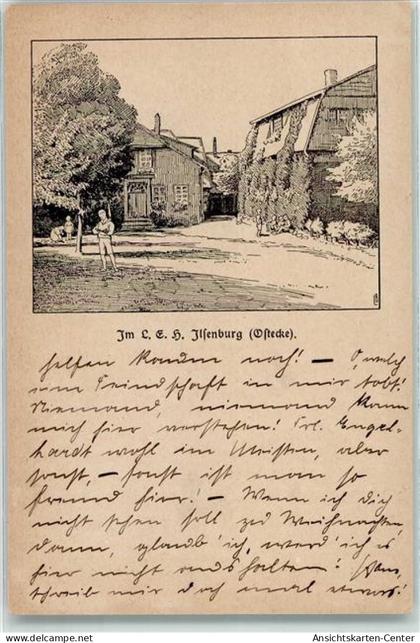 www.oldthing.de
Im L. E. H. Ilsenburg (Ostecke).
helfen kaum noch! — O, welch
eine Feindschaft in mir tobt!
Niemand, niemand kann
mich hier verstehen! Frl. Engel-
hardt wohl im Meisten, aber
sonst, – sonst ist man so
fremd hier! – Wenn ich dich
nicht sehen soll zu Weihnachten,
dann, glaub' ich, werd' ich es
hier nicht aushalten!
schreib mir doch mal etwas!
Ansichtskarten-Center